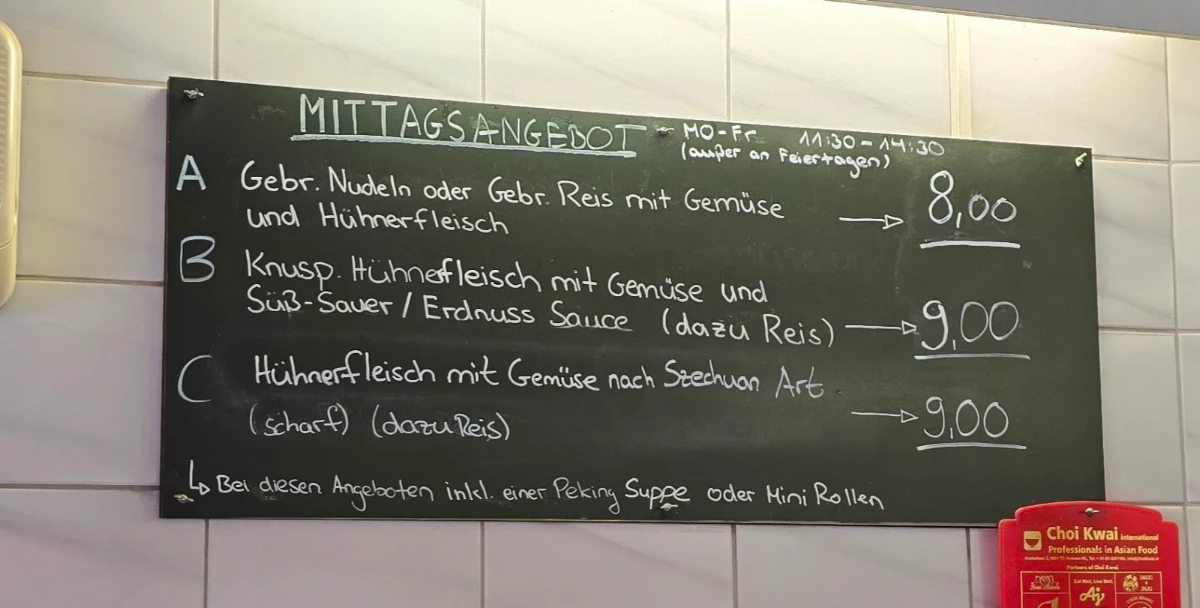 MITTAGSANGEBOT MO-Fr 11:30-14:30
(außer an Feiertagen)
A Gebr. Nudeln oder Gebr. Reis mit Gemüse
und Hühnerfleisch → 8,00
B Knusp. Hühnerfleisch mit Gemüse und
Süß-Sauer / Erdnuss Sauce (dazu Reis) → 9,00
C Hühnerfleisch mit Gemüse nach Szechuan Art
(scharf) (dazu Reis) → 9,00
↳ Bei diesen Angeboten inkl. einer Peking Suppe oder Mini Rollen
Choi Kwai international
Professionals in Asian Food
Partners of Choi Kwai